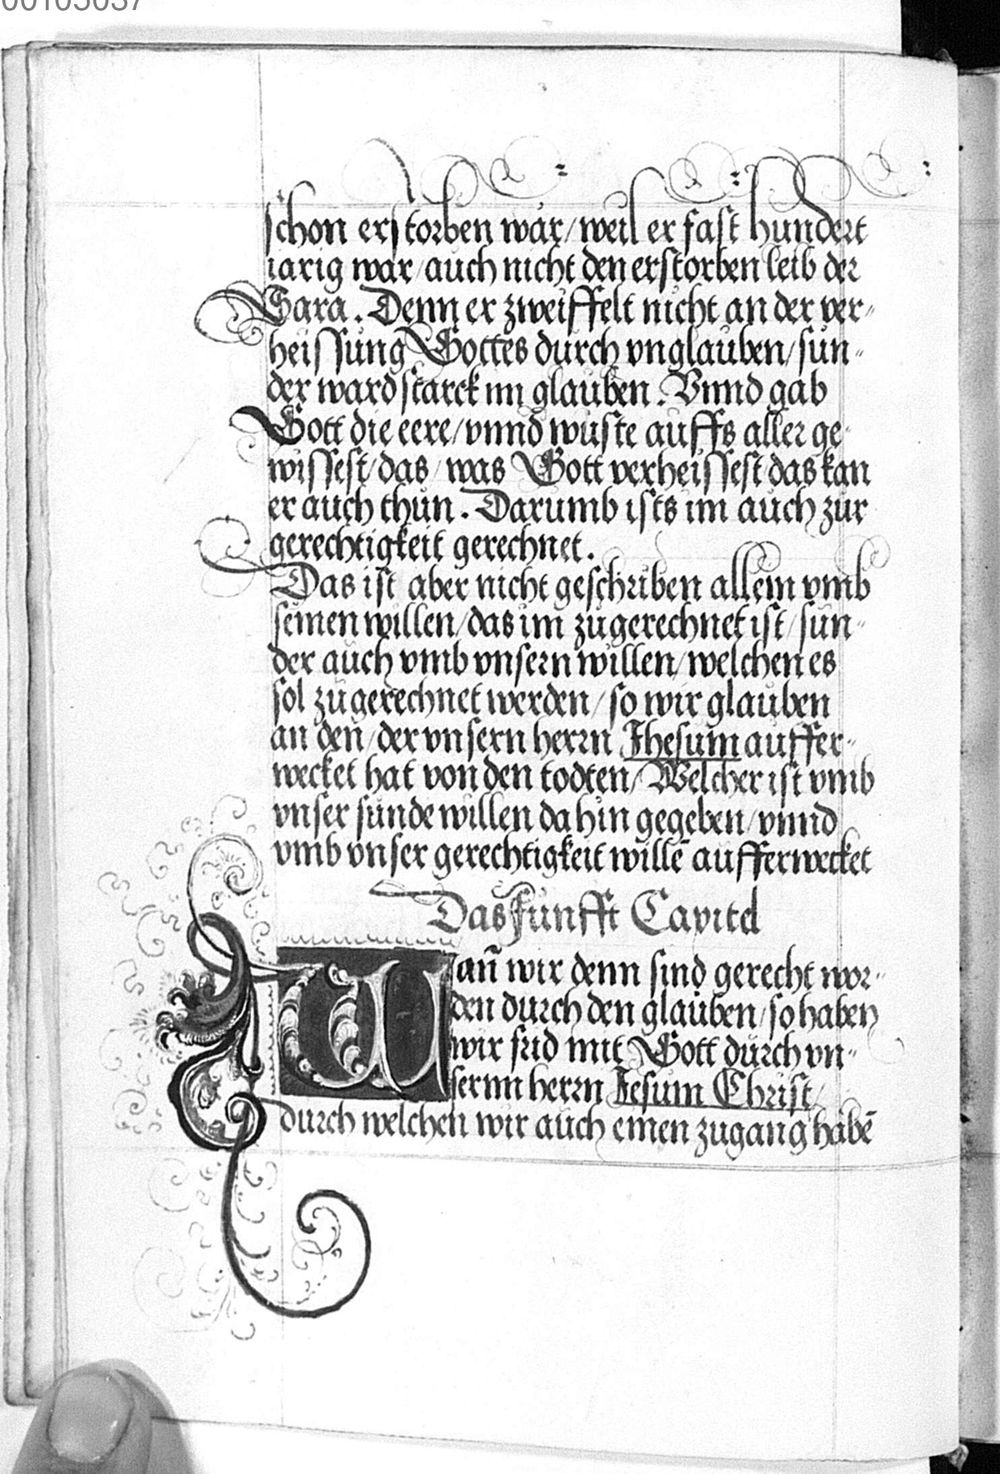 00105037
schon erstorben war/weil er fast hundert
iarig war/auch nicht den erstorben leib der
Sara. Denn er zweiffelt nicht an der ver-
heissung Gottes durch vnglauben/sun-
der ward starck im glauben. Vnnd gab
Gott die eere/vnnd wuste auffs aller ge-
wissest/das/was Gott verheissest das kan
er auch thun. Darumb ists im auch zur
gerechtigkeit gerechnet.
Das ist aber nicht geschriben allein vmb
seinen willen/das im zugerechnet ist/sun-
der auch vmb vnsern willen/welchen es
sol zugerechnet werden/so wir glauben
an den/der vnsern herrn Jhesum auffer-
wecket hat von den todten/Welcher ist vmb
vnser sunde willen dahin gegeben/vnnd
vmb vnser gerechtigkeit willē aufferwecket
Das funfft Capitel
Wañ wir denn sind gerecht wor-
den durch den glauben/so haben
wir frid mit Gott durch vn-
sernn herrn Jesum Christ/
durch welchen wir auch einen zugang habē